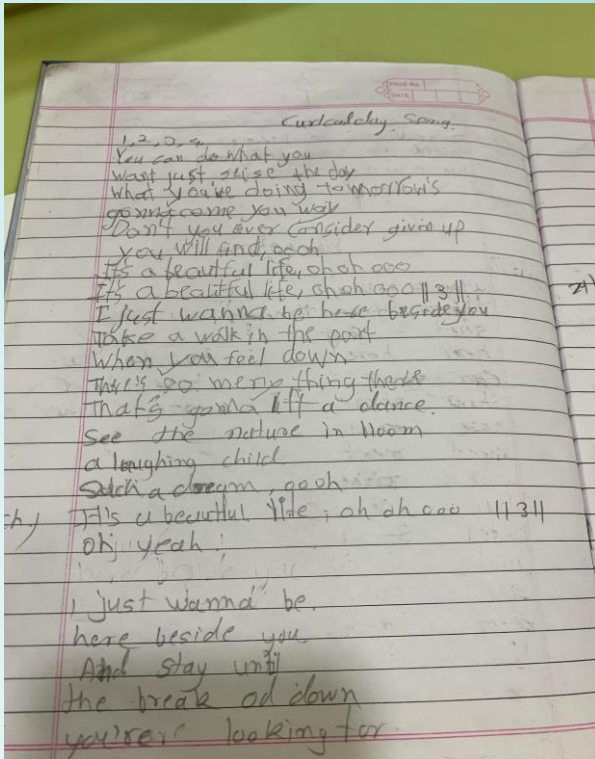 PAGE No.
DATE
Song.
1, 2, 3, 4
You can do what you
want just seise the day
What you're doing tomorrow's
gonna come you way
Don't you ever Consider given up
you will find, oooh
It's a beautful life, oh oh ooo
It's a beautiful life, oh oh ooo ||3||
I just wanna be here beside you
Take a walk in the part
When you feel down
There's so meny thing there
That's gonna lift a dance.
See the nature in lloom
a laughing child
Such a dream, oooh
ch.) It's a beautful life, oh oh ooo ||3||
Oh yeah!
I just wanna be,
here beside you
And stay until
the break od down
you're looking for.